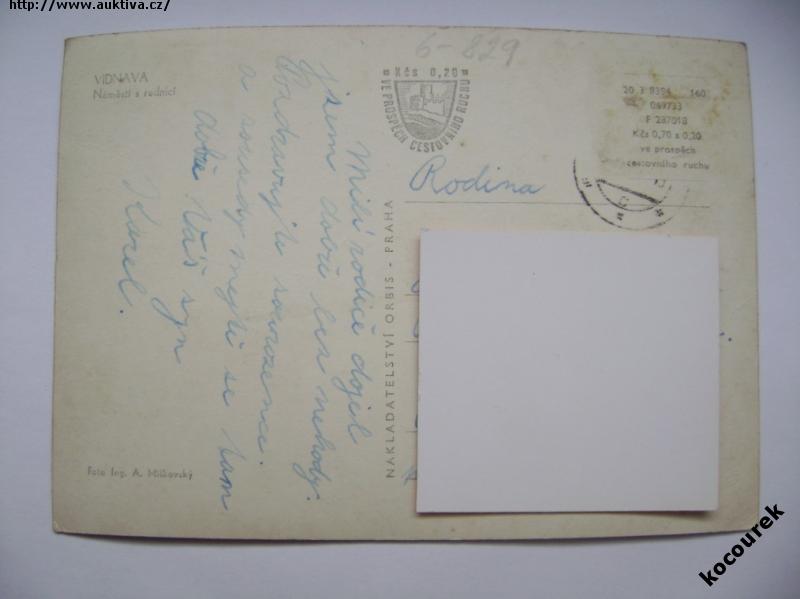 http://www.auktiva.cz/
6-829
VIDNAVA
Náměstí s radnicí
Kčs 0,20
VE PROSPĚCH CESTOVNÍHO RUCHU
160
069733
F 287018
Kčs 0,70 s 0,20
ve prospěch
cestovního ruchu
Milí rodiče dojel
jsem dobře bez nehody.
Pozdravujte sourozence
a sousedy mějte se tam
dobře Váš syn
Karel.
NAKLADATELSTVÍ ORBIS - PRAHA
Rodina
Foto Ing. A. Miškovský
kocourek